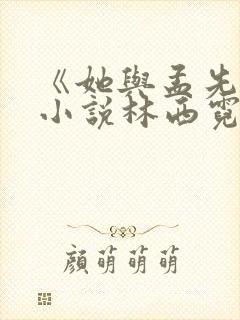 《她与孟先
小說林西霓
顏萌萌萌